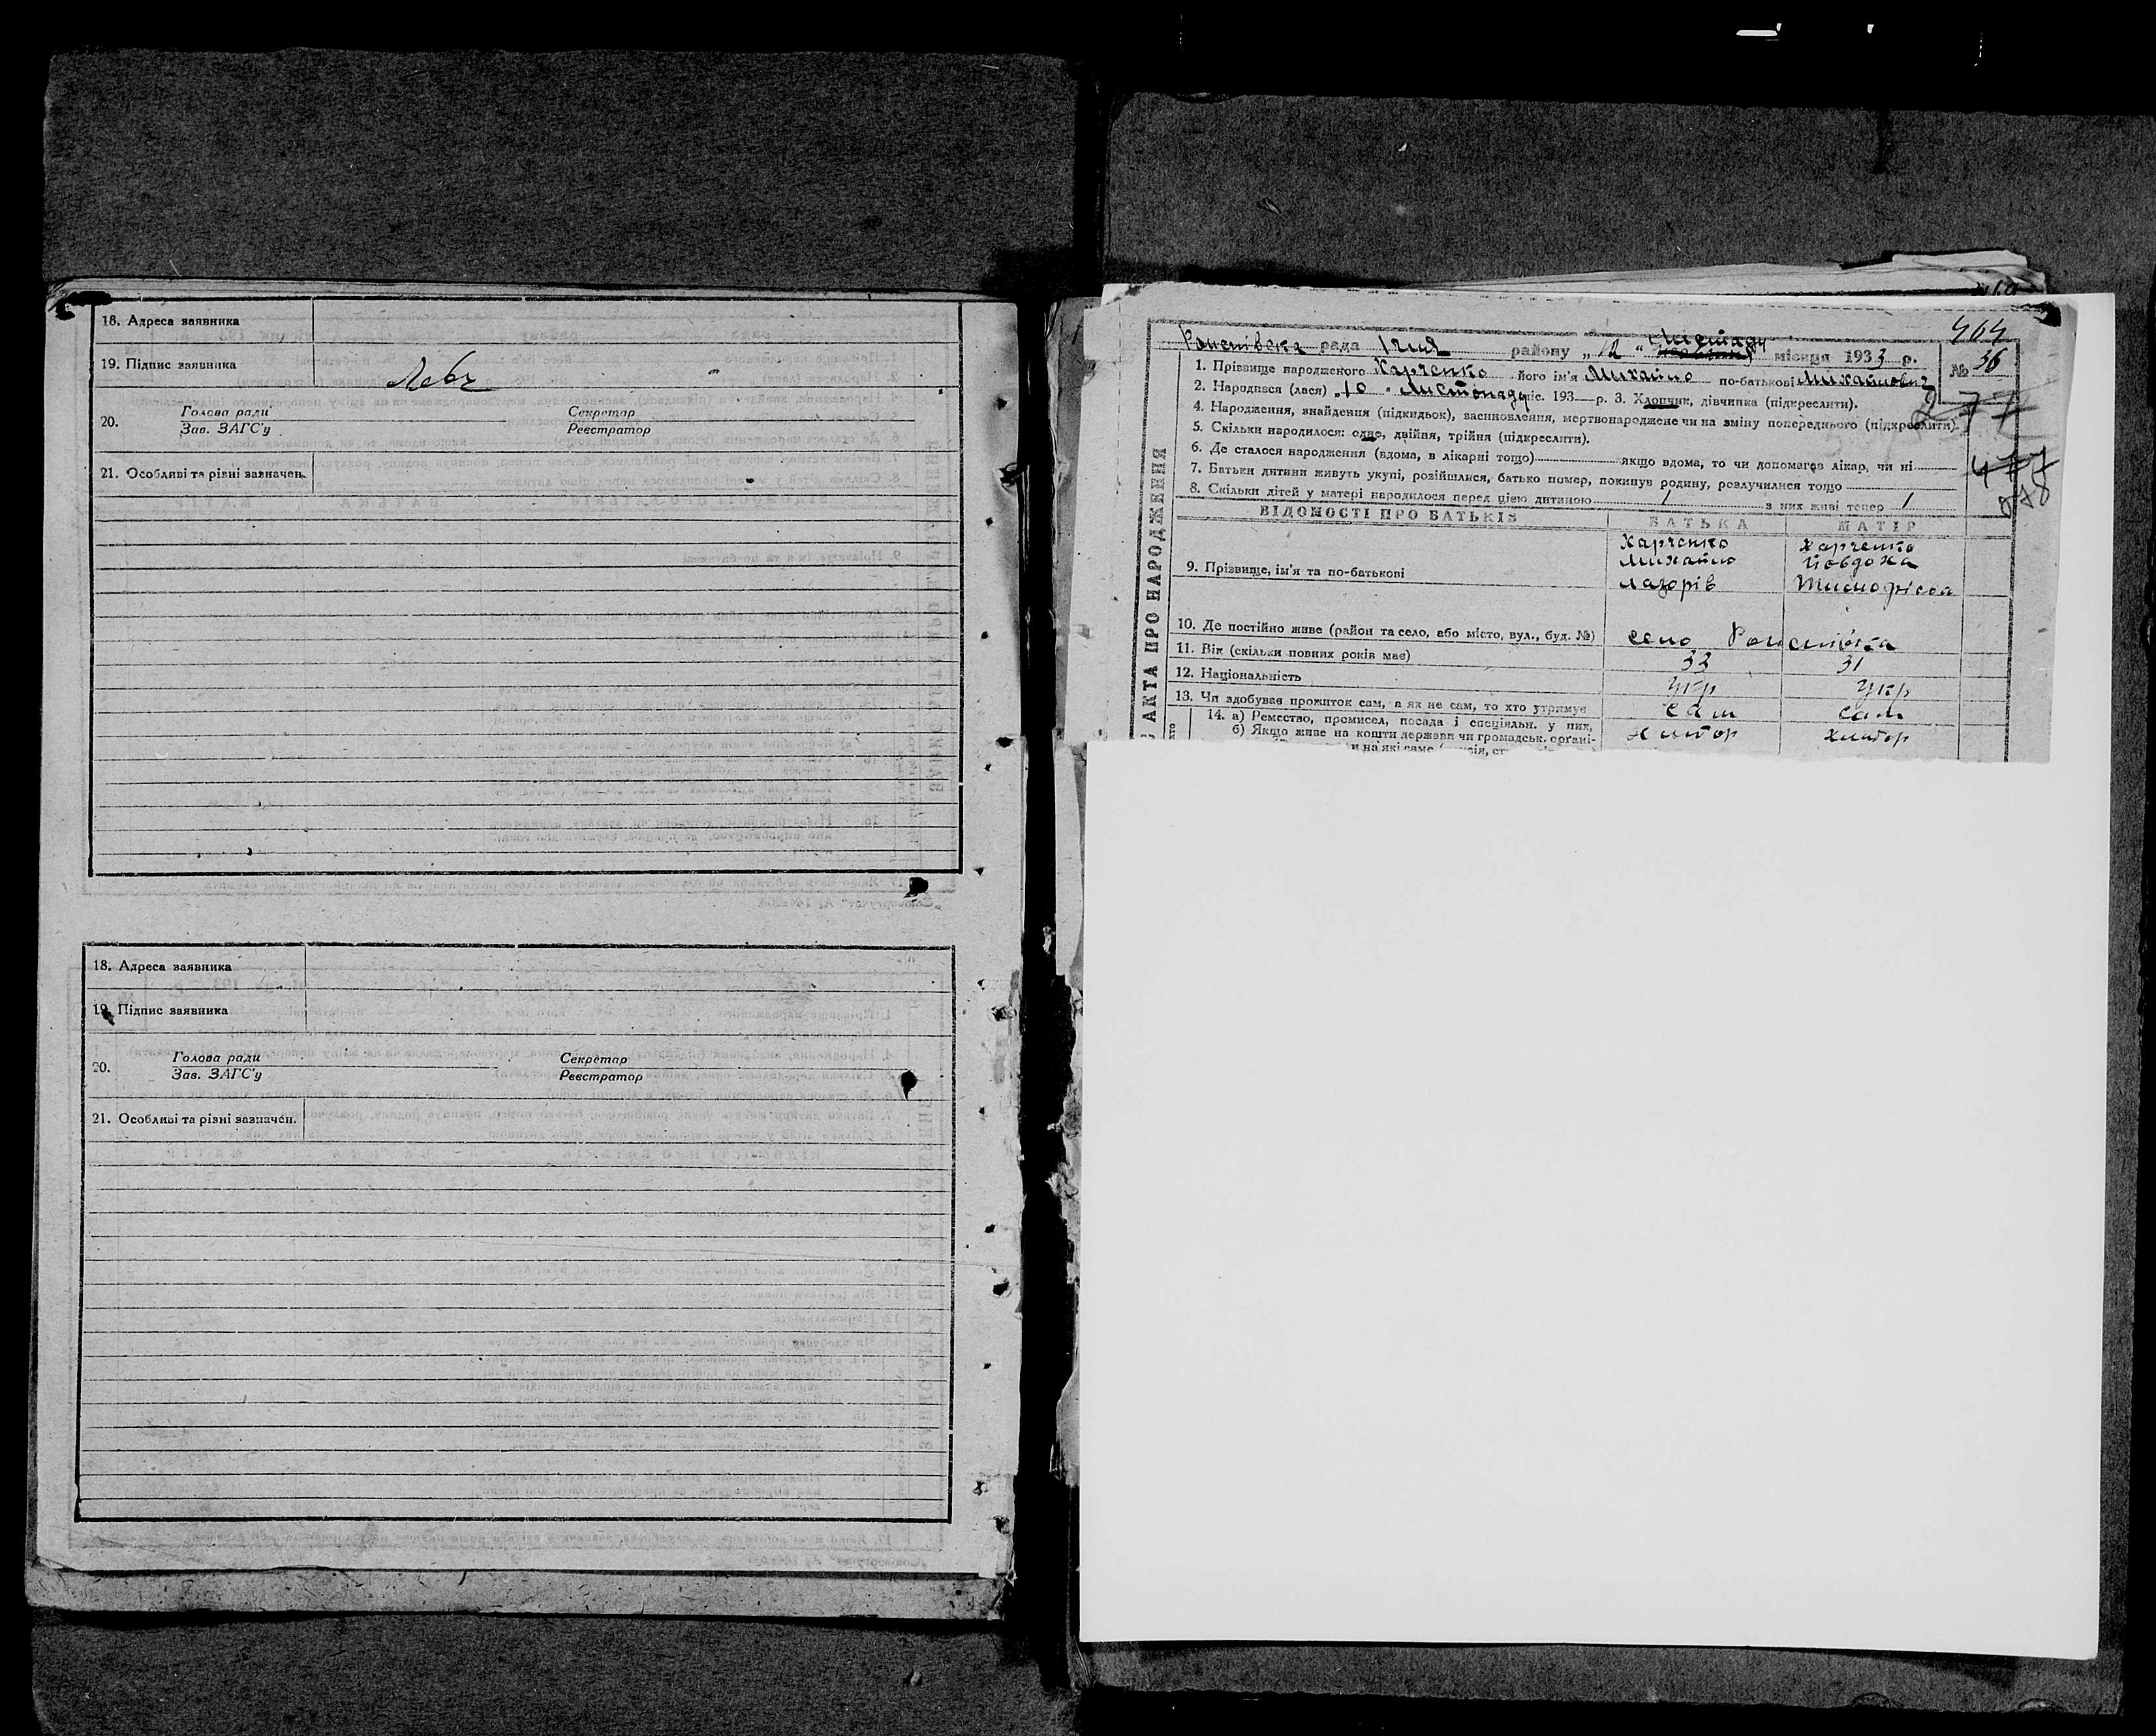 18. Адреса заявника
19. Підпис заявника
20. Голова ради Секретар
Зав. ЗАГС'у Реєстратор
21. Особливі та різні зазначен.
18. Адреса заявника
19. Підпис заявника
20. Голова ради Секретар
Зав. ЗАГС'у Реєстратор
21. Особливі та різні зазначен.
464
Листопаду
рада Ічня району „12“ місяця 1933 р.
№ 36
1. Прізвище народженого Харченко його ім'я Михайло по-батькові Михайлович
2. Народився (лася) „10 " Листопаду міс. 193 р. 3. Хлопчик, дівчинка (підкреслити).
277
4. Народження, знайдення (підкидьок), засиновлення, мертвонароджене чи на зміну попереднього (підкреслити).
5. Скільки народилося: одне, двійня, трійня (підкреслити).
6. Де сталося народження (вдома, в лікарні тощо) якщо вдома, то чи допомагав лікар, чи ні
7. Батьки дитини живуть укупі, розійшлися, батько помер, покинув родину, розлучилися тощо
8. Скільки дітей у матері народилося перед цією дитиною 1 з них живі тепер 1
ВІДОМОСТІ ПРО БАТЬКІВ БАТЬКА МАТІР
Харченко Харченко
Михайло Йовдоха
9. Прізвище, ім'я та по-батькові
Лазорів Тимофієва
10. Де постійно живе (район та село, або місто, вул., буд. №) село
11. Вік (скільки повних років має) 33 31
12. Національність Укр Укр
13. Чи здобуває прожиток сам, а як не сам, то хто утримує сам сам
14. а) Ремество, промисел, посада і спеціяльн. у них, хлібор хлібор
б) Якщо живе на кошти держави чи громадськ. орґані-
и на які саме
АКТА ПРО НАРОДЖЕННЯ